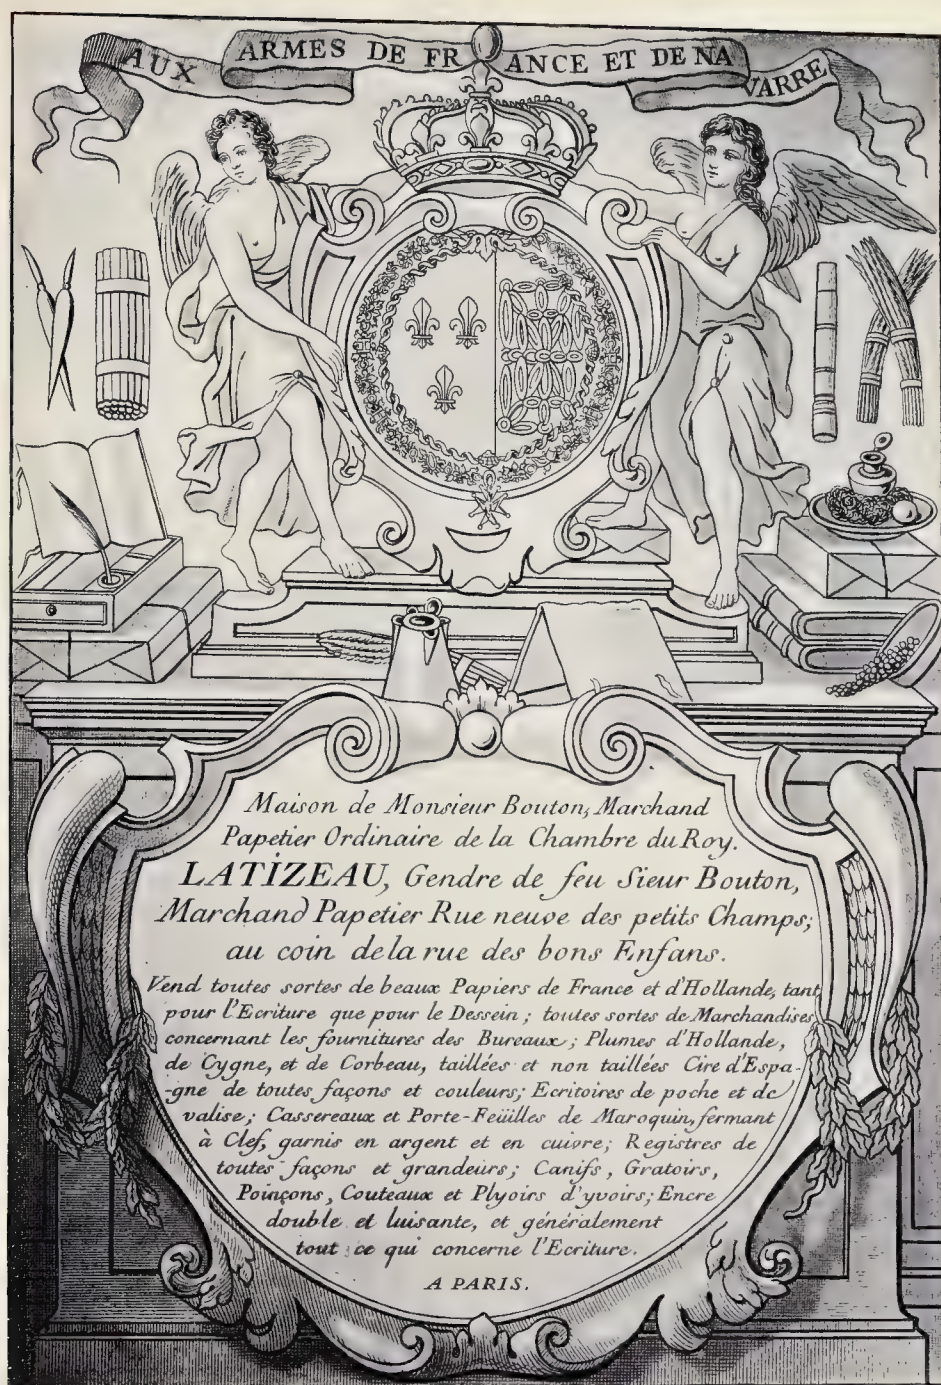 AUX ARMES DE FRANCE ET DE NAVARRE
Maison de Monsieur Bouton, Marchand
Papetier Ordinaire de la Chambre du Roy.
LATIZEAU, Gendre de feu Sieur Bouton,
Marchand Papetier Rue neuve des petits Champs;
au coin de la rue des bons Enfans.
Vend toutes sortes de beaux Papiers de France et d'Hollande, tant
pour l'Ecriture que pour le Dessein; toutes sortes de Marchandises
concernant les fournitures des Bureaux; Plumes d'Hollande,
de Cygne, et de Corbeau, taillées et non taillées Cire d'Espa-
gne de toutes façons et couleurs; Ecritoires de poche et de
valise; Cassereaux et Porte-Feüilles de Maroquin, fermant
à Clef, garnis en argent et en cuivre; Registres de
toutes façons et grandeurs; Canifs, Gratoirs,
Poinçons, Couteaux et Plyoirs d'yvoirs; Encre
double et luisante, et généralement
tout ce qui concerne l'Ecriture.
A PARIS.